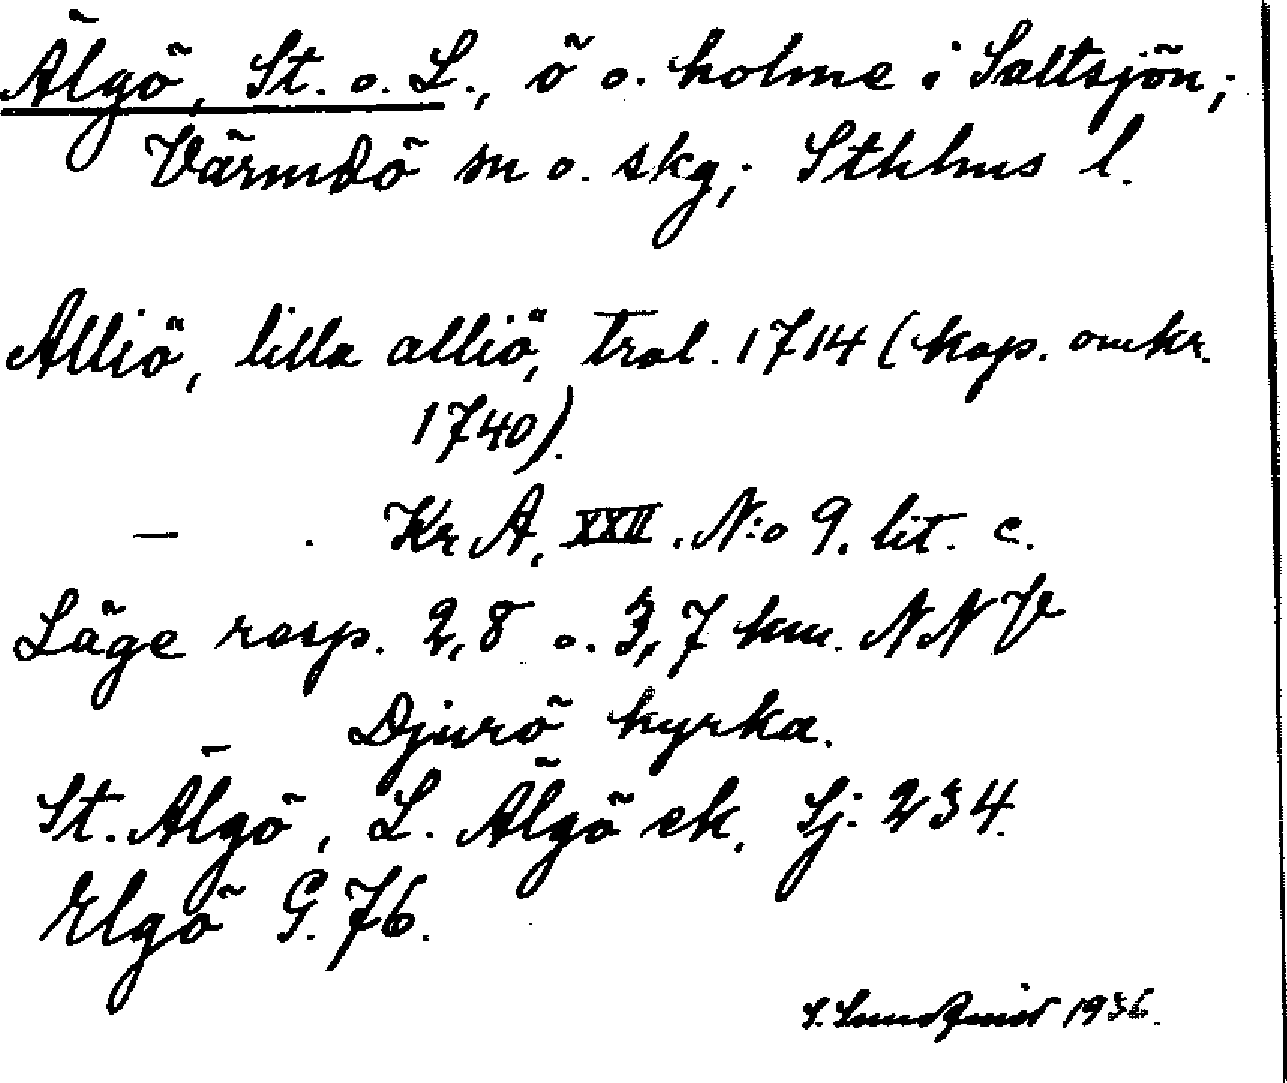 Älgö, St. o. L., ö o. holme i Saltsjön;
Värmdö sn o. skg; Sthlms l.
Alliö, lilla alliö, trol. 1714 (kop. omkr.
1740).
— . KrA, XXII. N:o 9. lit. c.
Läge resp. 2,8 o. 3,7 km. NNV
Djurö kyrka.
St. Älgö, L. Älgö ek. Sj: 234.
Elgö G. 76.
1936.